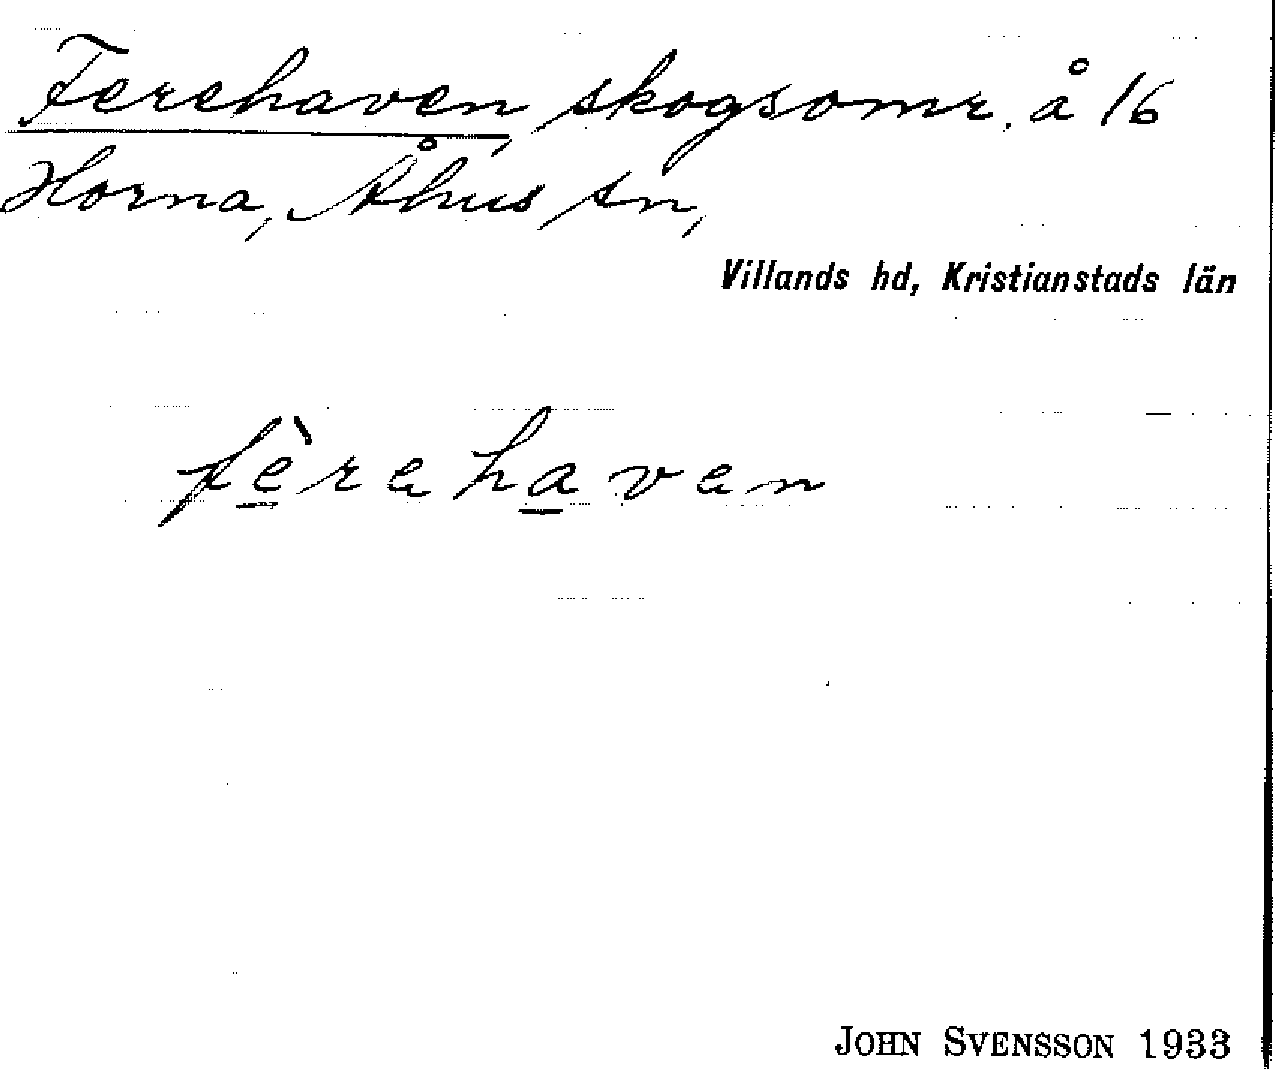 Ferehaven, skogsomr. å 16
Horna, Åhus sn,
Villands hd, Kristianstads län
fèrehaven
JOHN SVENSSON 1933